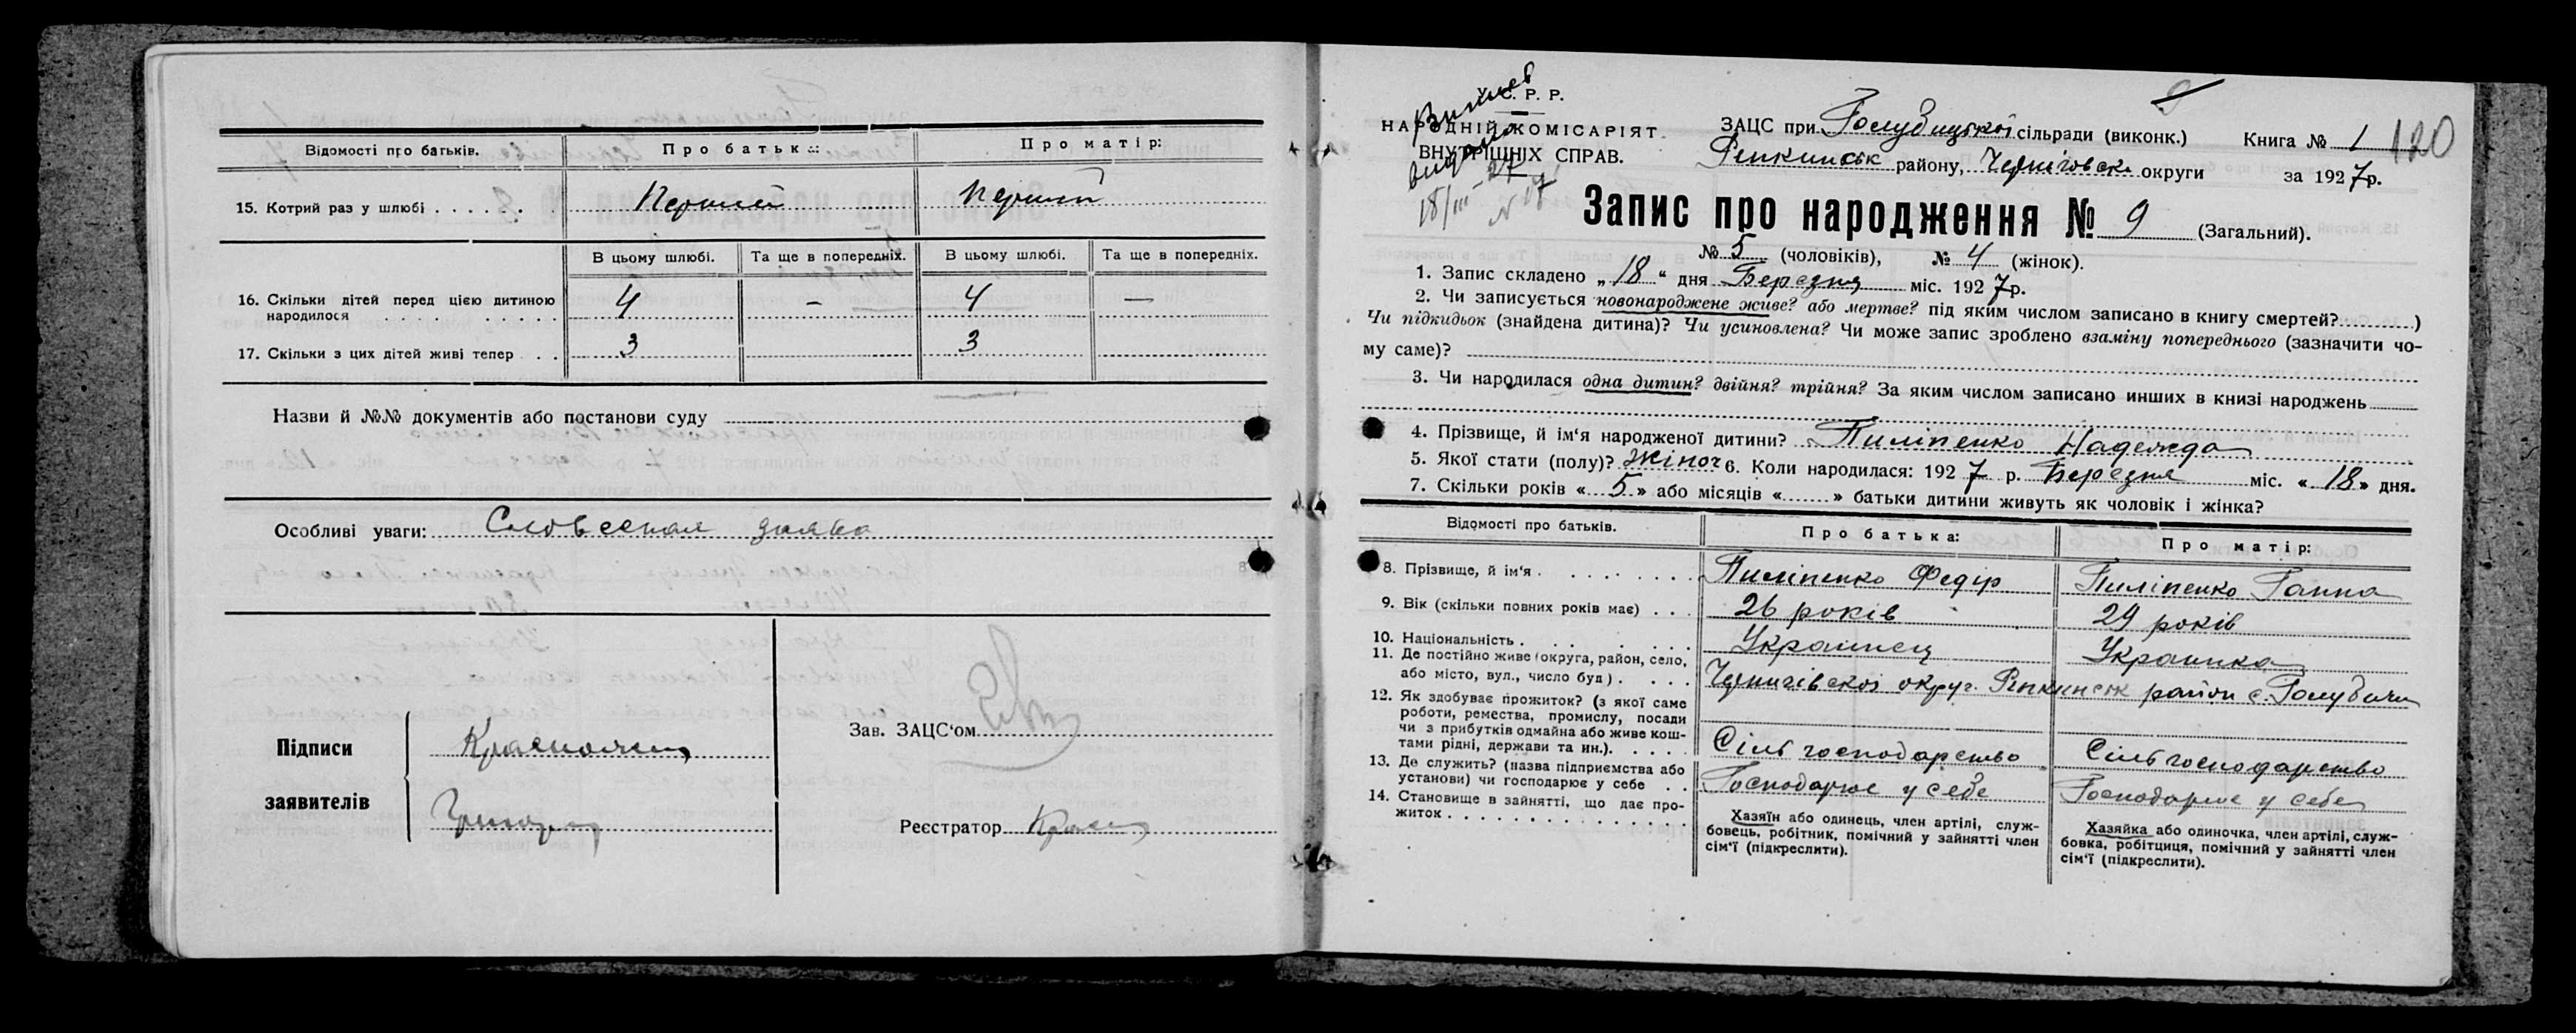 Відомості про батьків.
Про батька:
Про матір:
15. Котрий раз у шлюбі
Перший
Перший
В цьому шлюбі.
Та ще в попередніх.
В цьому шлюбі.
Та ще в попередніх.
16. Скільки дітей перед цією дитиною
народилося
4
–
4
—
17. Скільки з цих дітей живі тепер
3
3
Назви й №№ документів або постанови суду
Особливі уваги: Словесная заява
Підписи
заявителів
Зав. ЗАЦС'ом
Реєстратор
У. С. Р. Р.
НАРОДНІЙ КОМІСАРІЯТ
ВНУТРІШНІХ СПРАВ.
18/III–27
ЗАЦС при Голубицької сільради (виконк.)
Книга № 1
120
Ріпкинськ району, Черніговськ округи
за 1927 р.
Запис про народження № 9 (Загальний).
№ 5 (чоловіків), № 4 (жінок).
1. Запис складено „18“ дня Березня міс. 1927 р.
2. Чи записується новонароджене живе? або мертве? під яким числом записано в книгу смертей? )
Чи підкидьок (знайдена дитина)? Чи усиновлена? Чи може запис зроблено взаміну попереднього (зазначити чо-
му саме)?
3. Чи народилася одна дитин? двійня? трійня? За яким числом записано инших в книзі народжень
4. Прізвище, й ім'я народженої дитини? Пиліпенко Надежда
5. Якої стати (полу)? Жіноч 6. Коли народилася: 1927 р. Березня міс. «18» дня.
7. Скільки років «5» або місяців «......» батьки дитини живуть як чоловік і жінка?
Відомості про батьків.
Про батька:
Про матір:
8. Прізвище, й ім'я
Пиліпенко Федір
Пиліпенко Ганна
9. Вік (скільки повних років має)
26 років
29 років
10. Національність
Украинец
Украинка
11. Де постійно живе (округа, район, село,
або місто, вул., число буд)
Чернигівскої округ. Ріпкинськ район с. Голубичи
12. Як здобуває прожиток? (з якої саме
роботи, ремества, промислу, посади
чи з прибутків одмайна або живе кош-
тами рідні, держави та ин.).
Сільгосподарство
Сільгосподарство
13. Де служить? (назва підприємства або
установи) чи господарює у себе
Господарює у себе
Господарює у себе
14. Становище в зайнятті, що дає про-
житок
Хазяїн або одинець, член артілі, служ-
бовець, робітник, помічний у зайнятті член
сім'ї (підкреслити).
Хазяйка або одиночка, член артілі, служ-
бовка, робітциця, помічний у зайнятті член
сім'ї (підкреслити).